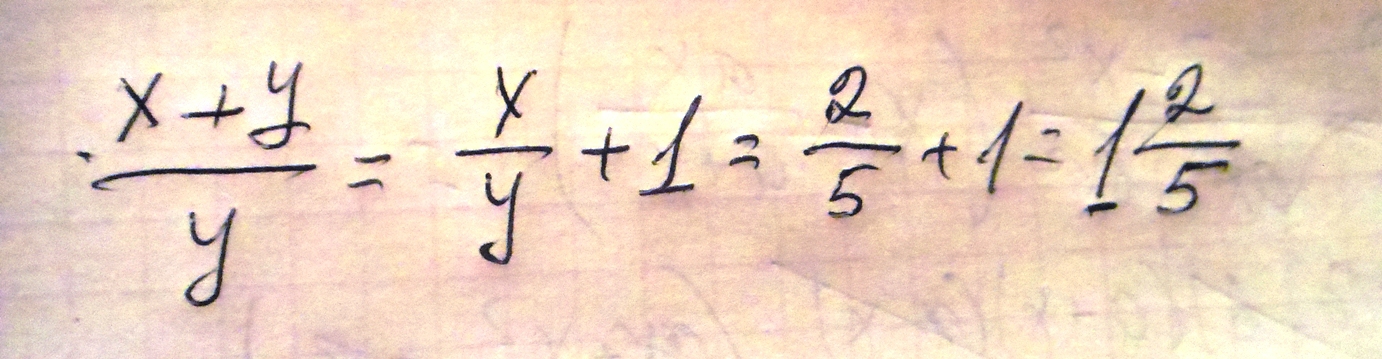 \frac{x+y}{y} = \frac{x}{y} + 1 = \frac{2}{5} + 1 = 1\frac{2}{5}